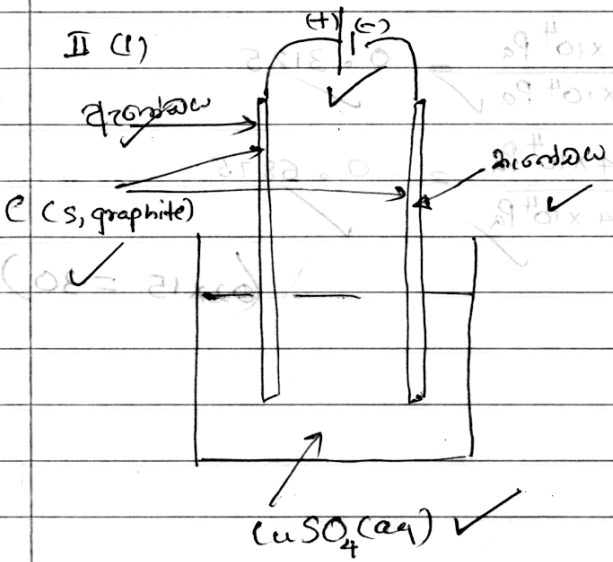 II (1)
(+) (-)
ඇනෝඩය
කැතෝඩය
C (s, graphite)
CuSO₄(aq)